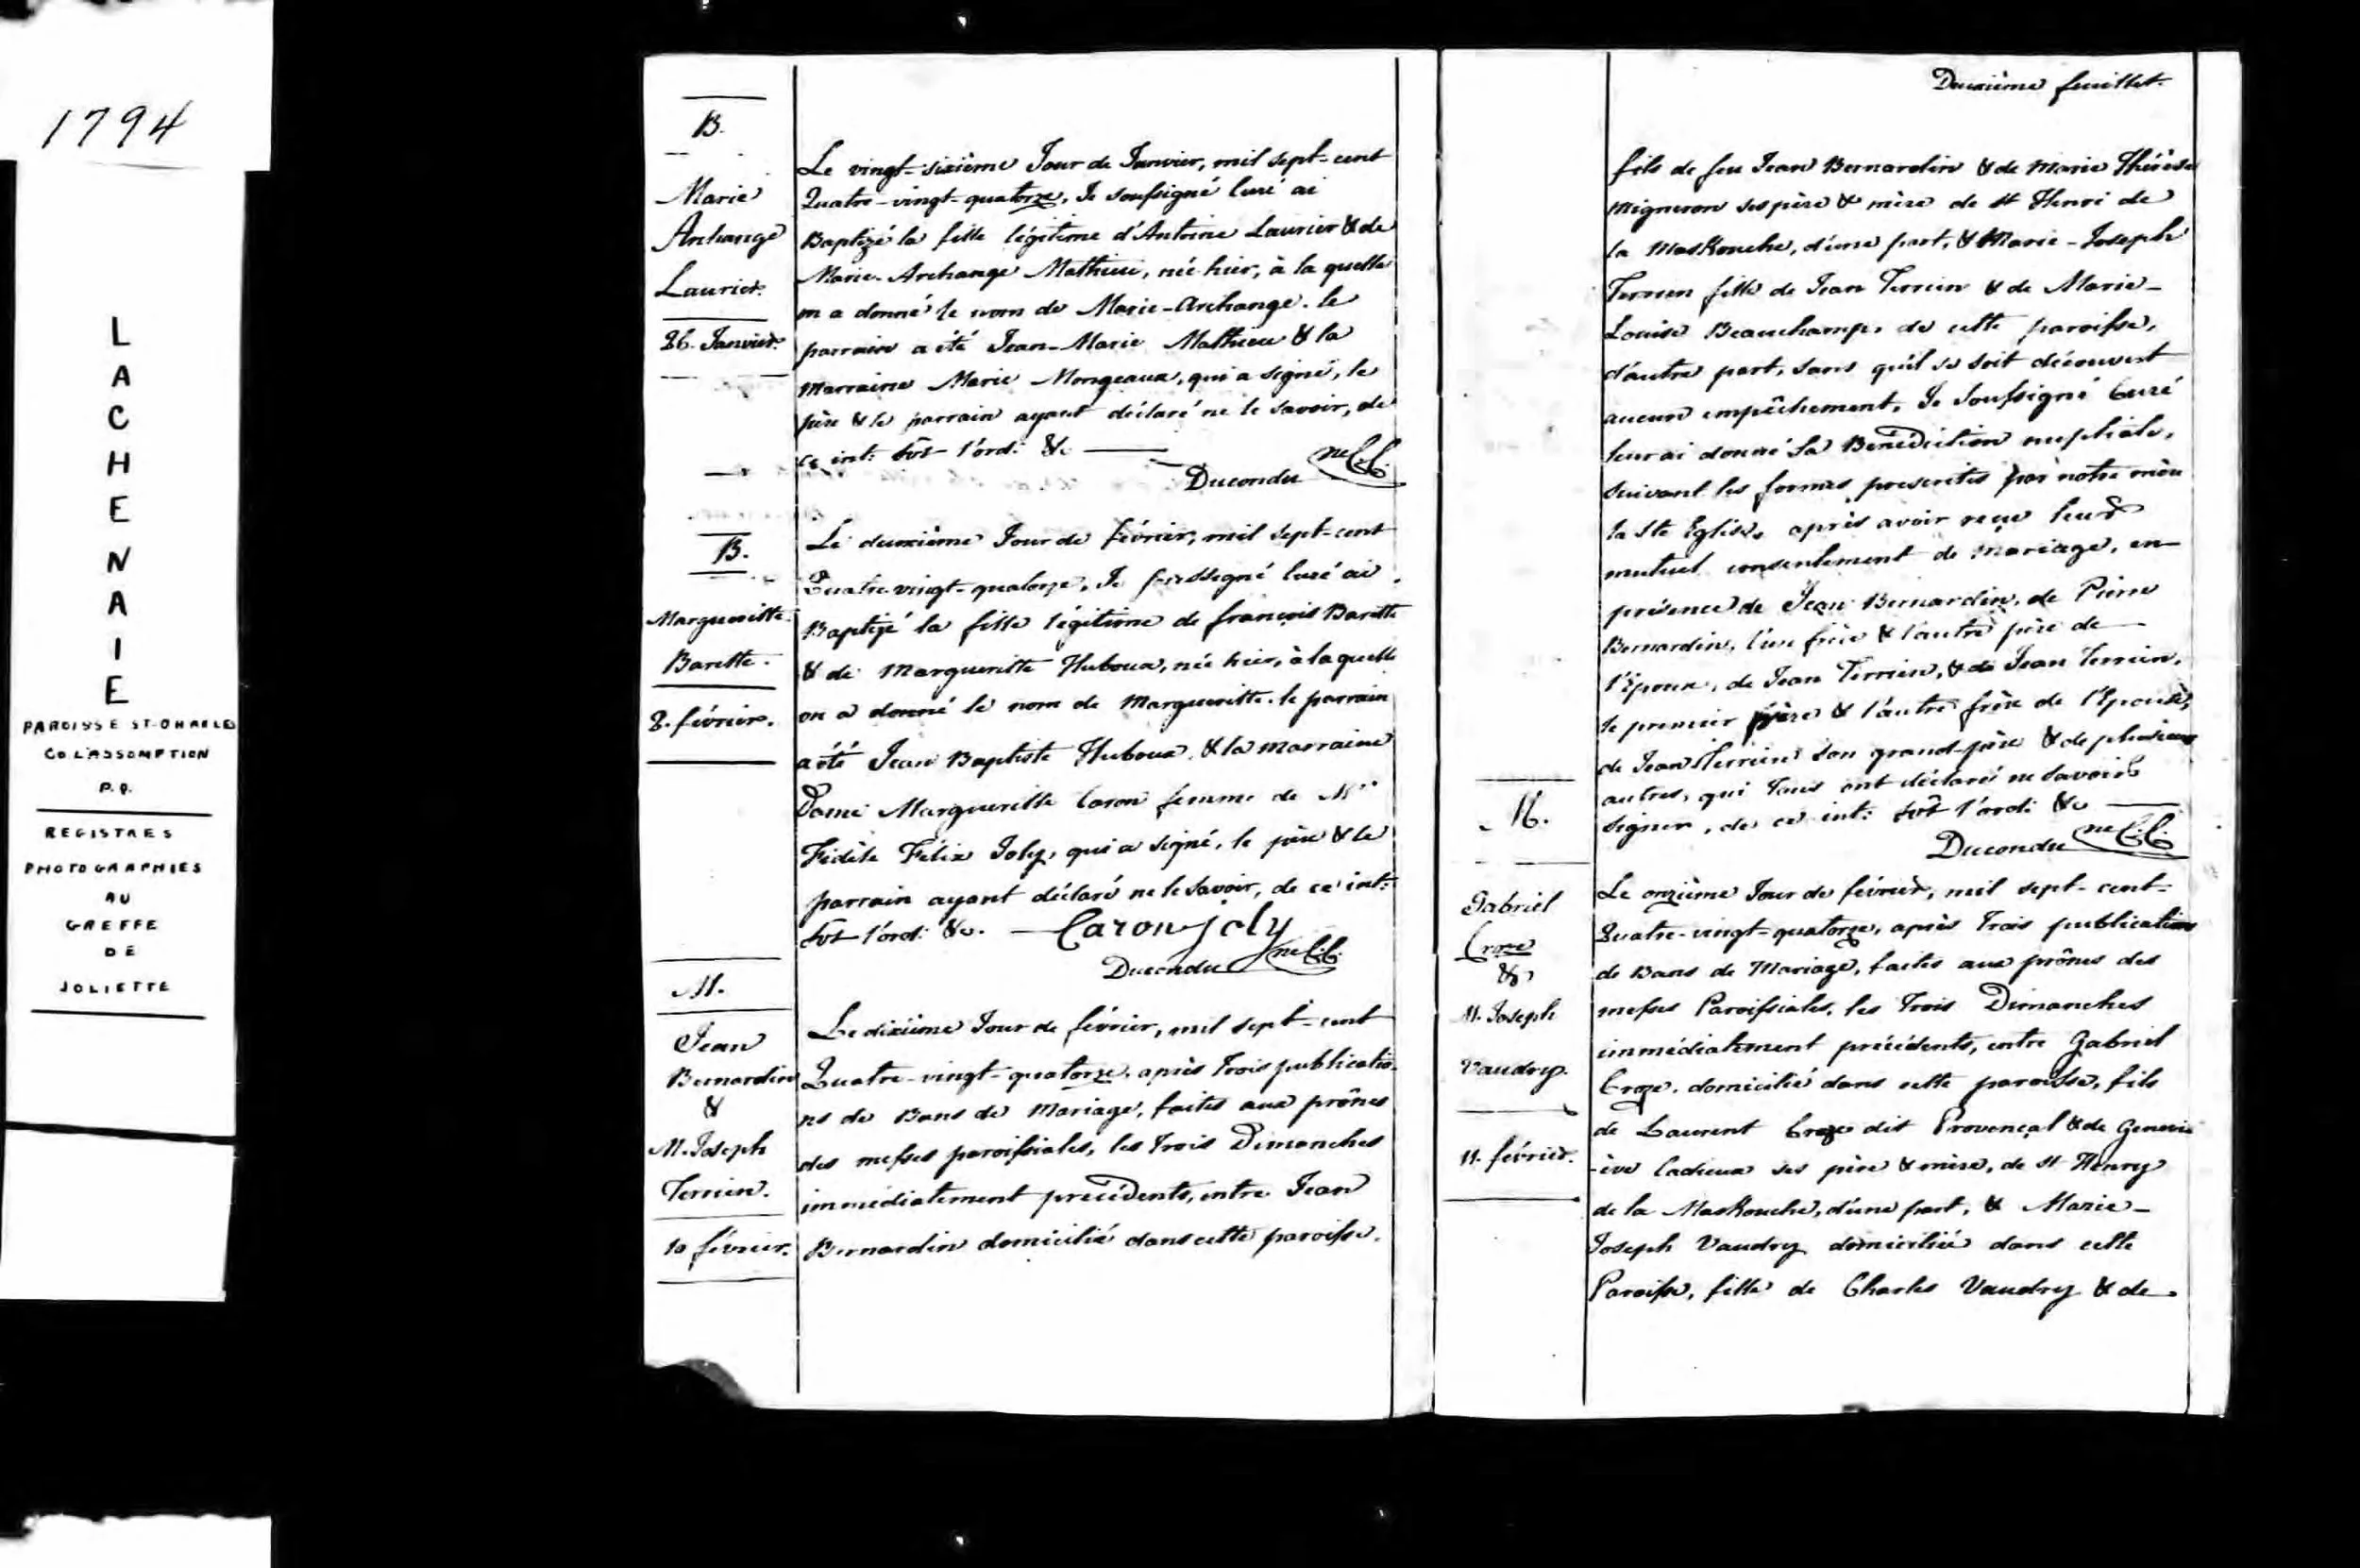 1794
LACHENAIE
PAROISSE ST-CHARLES
CO L'ASSOMPTION
P.Q.
REGISTRES
PHOTOGRAPHIES
AU
GREFFE
DE
JOLIETTE
B.
Marie
Archange
Laurier.
26. Janvier.
Le vingt-sixième Jour de Janvier, mil sept-cent
Quatre-vingt-quatorze, Je soussigné Curé ai
Baptizé la fille légitime d'Antoine Laurier & de
Marie-Archange Mathieu, née hier, à la quelle
on a donné le nom de Marie-Archange. le
parrain a été Jean-Marie Mathieu & la
marraine Marie Mongeaux, qui a signé, le
père & le parrain ayant déclaré ne le savoir, de
ce int: svt l'ord: &c.
Ducondu
B.
Margueritte
Barette.
2. février.
Le deuxième Jour de février, mil sept-cent
Quatre-vingt-quatorze, Je soussigné Curé ai
Baptizé la fille légitime de françois Barette
& de Margueritte Huboux, née hier, à la quelle
on a donné le nom de Margueritte. le parrain
a été Jean Baptiste Huboux, & la marraine
Dame Margueritte Caron femme de Mr
Fidèle Félix Joly, qui a signé, le père & le
parrain ayant déclaré ne le savoir, de ce int:
svt l'ord: &c. Caron joly
Ducondu
M.
Jean
Bernardin
&
M. Joseph
Terrien.
10 février.
Le dixième Jour de février, mil sept-cent
Quatre-vingt-quatorze, après Trois publicatio-
ns de Bans de Mariage, faites aux prônes
des messes paroissiales, les Trois Dimanches
immédiatement precédents, entre Jean
Bernardin domicilié dans cette paroisse.
Deuxième feuillet.
fils de feu Jean Bernardin & de Marie Thérèse
Migneron ses père & mère de St Henri de
la Maskouche, d'une part, & Marie-Joseph
Terrien fille de Jean Terrien & de Marie-
Louise Beauchamp, de cette paroisse,
d'autre part, sans qu'il se soit découvert
aucun empêchement, Je Soussigné Curé
leur ai donné la Bénédiction nuptiale,
suivant les formes prescrites par notre mère
la Ste Eglise, après avoir reçu leur
mutuel consentement de mariage, en
présence de Jean Bernardin, de Pierre
Bernardin, l'un frère & l'autre père de
l'époux, de Jean Terrien, & de Jean Terrien,
le premier père & l'autre frère de l'Epouse,
de Jean Terrien son grand-père & de plusieurs
autres, qui Tous ont déclaré ne savoir
signer, de ce int: svt l'ord: &c
Ducondu
M.
Gabriel
Croze
&
M. Joseph
Vaudry.
11. février.
Le onzième Jour de février, mil sept-cent-
Quatre-vingt-quatorze, après Trois publications
de Bans de Mariage, faites aux prônes des
messes Paroissiales, les Trois Dimanches
immédiatement précédents, entre Gabriel
Croze, domicilié dans cette paroisse, fils
de Laurent Croze dit Provençal & de Genevi-
-ève Cadieux ses père & mère, de St Henry
de la Maskouche, d'une part, & Marie-
Joseph Vaudry domiciliée dans cette
Paroisse, fille de Charles Vaudry & de